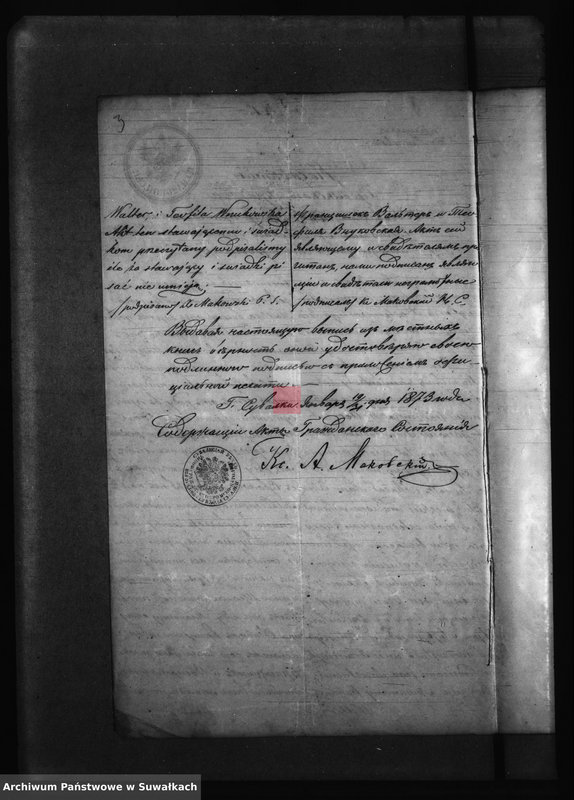 3
Walter i Teofila Wnukowska
Akt ten stawającemu i świad-
kom przeczytany podpisaliśmy
ile że stawający i świadki pi
sać nie umieją.
/podpisano/ X. Makowski P. S.
Францишек Вальтер и Тео-
филя Внуковская Акт сей
являющему и свидетелям про
читан, нами подписан являю
щие и свидетели неграмотные
/подписано/ Кс. Маковский Н. С.
Выдавая настоящую выпись из местных
книг верность оной удостоверяю своею
подлинною подписью с приложением офи-
циальной печати.
Г. Сувалки Января дня 1873 года
Содержащий Акты Гражданского Состояния
Кс. А. Маковский
Archiwum Państwowe w Suwałkach